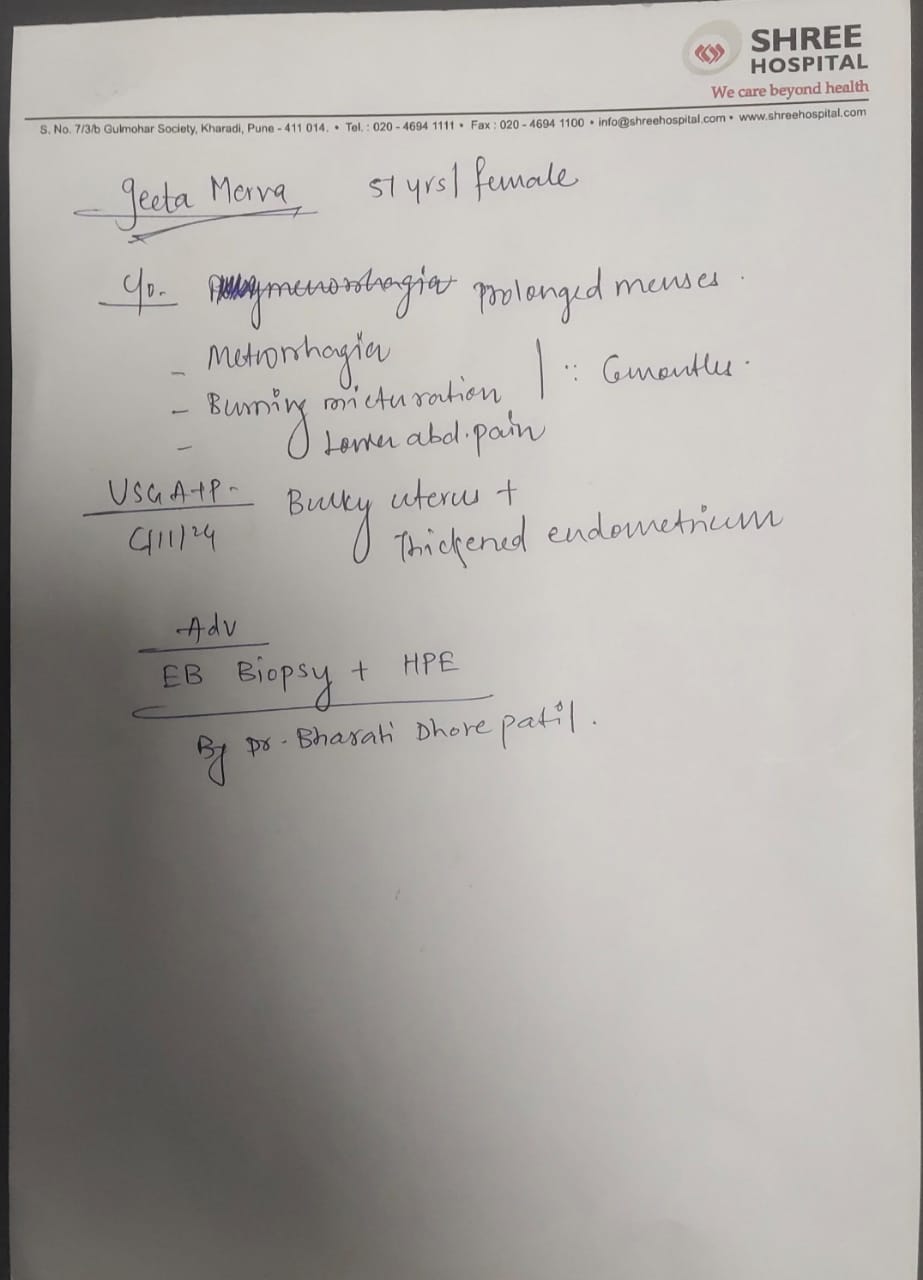 SHREE
HOSPITAL
We care beyond health
S. No. 7/3/b Gulmohar Society, Kharadi, Pune - 411 014. • Tel. : 020 - 4694 1111 • Fax : 020 - 4694 1100 • info@shreehospital.com • www.shreehospital.com
geeta 51 yrs/ female
c/o. menorrhagia prolonged menses.
- Metrorrhagia
- Burning micturation :: 6months.
- Lower abd. pain
USG A+P - Bulky uterus +
6/11/24 Thickened endometrium
Adv
EB Biopsy + HPE
By Dr. Bharati Dhore patil.